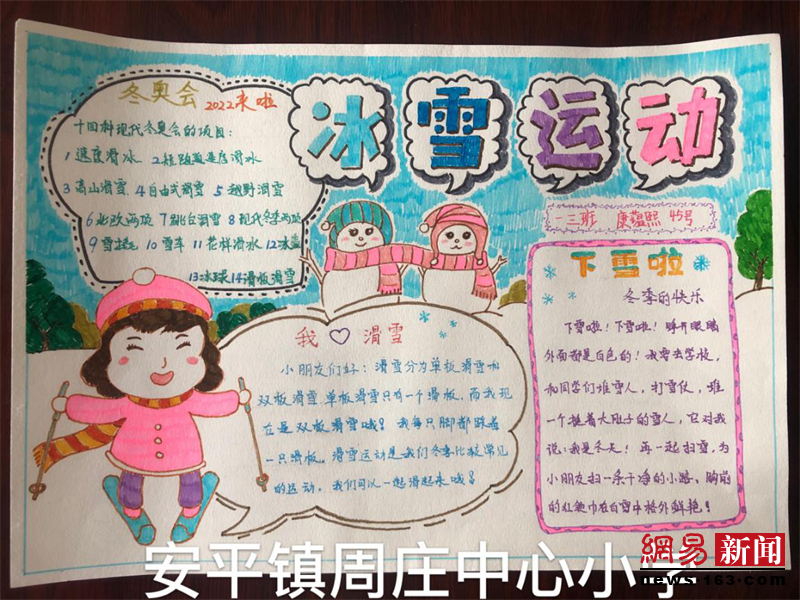 冰雪运动
冬奥会 2022来啦
十四种现代冬奥会的项目:
1 速度滑冰 2 短跑道速度滑冰
3 高山滑雪 4 自由式滑雪 5 越野滑雪
6 北欧两项 7 跳台滑雪 8 现代冬季两项
9 雪橇 10 雪车 11 花样滑冰 12 冰壶
13 冰球 14 滑板滑雪
一三班 康蕴熙 45号
我♡滑雪
小朋友们好:滑雪分为单板滑雪和
双板滑雪,单板滑雪只有一个滑板,而我现
在是双板滑雪哦?我每只脚都踩着
一只滑板。滑雪运动是我们冬季比较常见
的运动,我们可以一起滑起来哦?
下雪啦
冬季的快乐
下雪啦!下雪啦!睁开眼睛
外面都是白色的!我要去学校,
和同学们堆雪人,打雪仗,堆
一个挺着大肚子的雪人,它对我
说:我是冬天!再一起扫雪,为
小朋友扫一条干净的小路,胸前
的红领巾在白雪中格外鲜艳!
安平镇周庄中心小学
網易 新闻
news.163.com